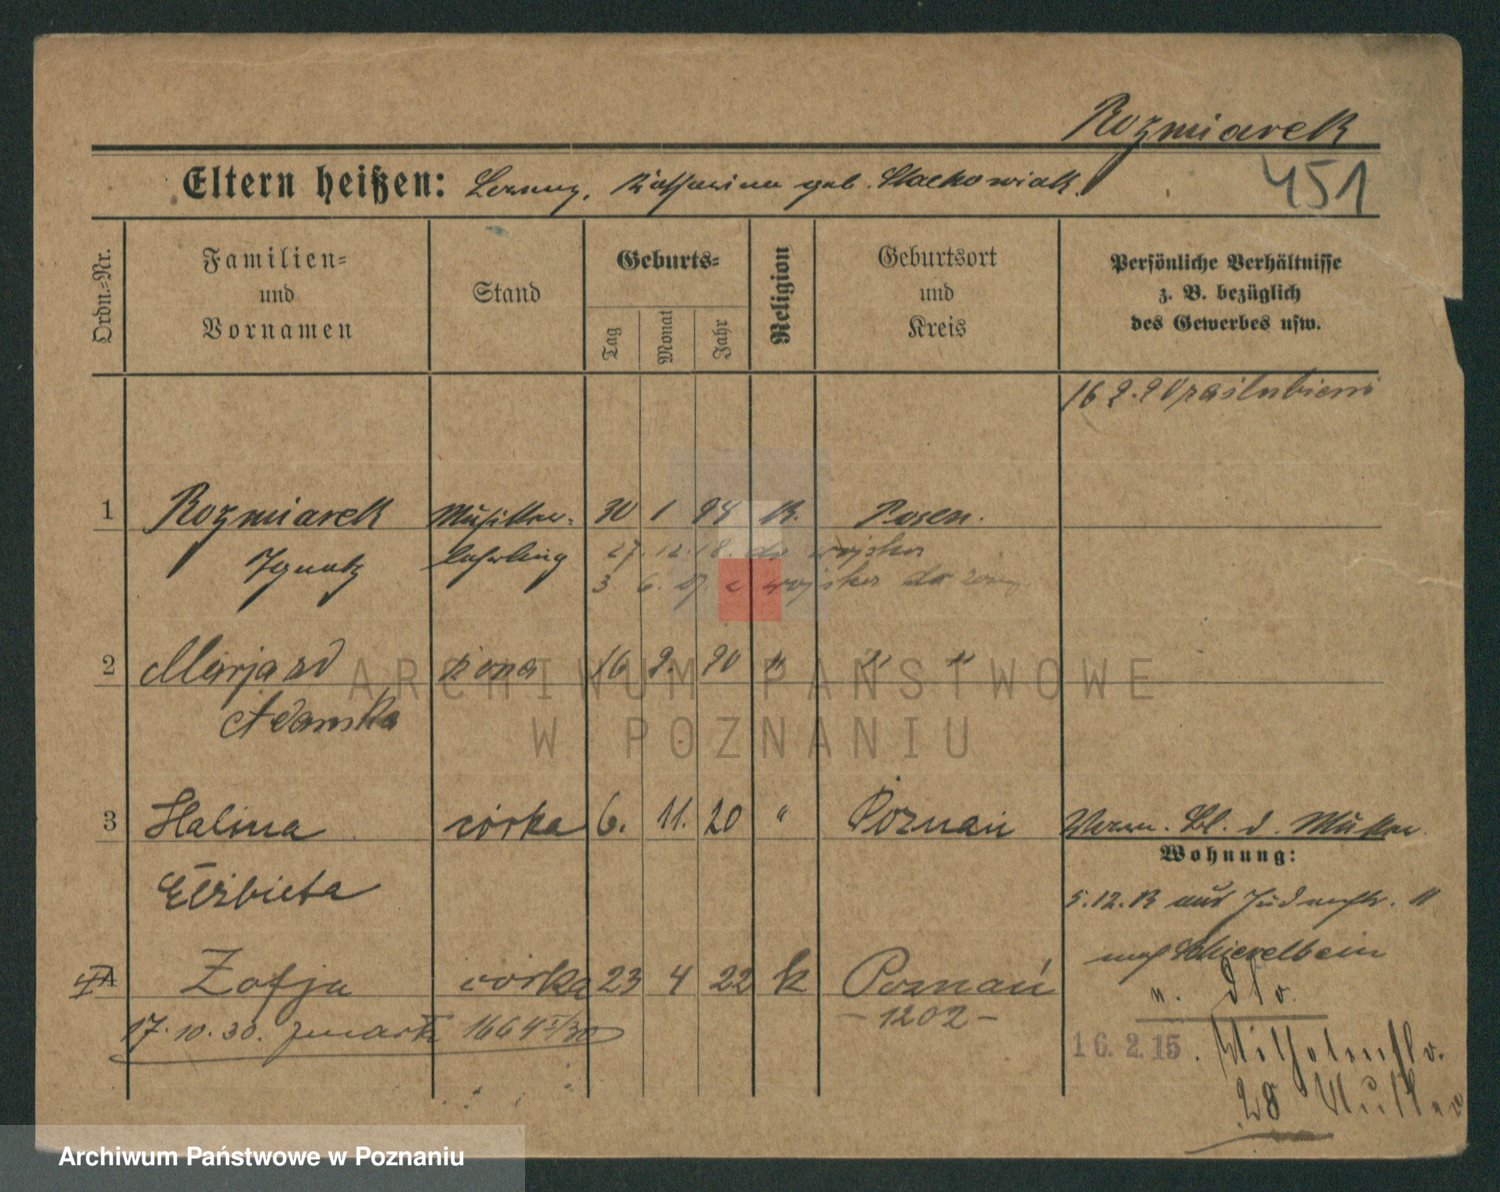 Rozmiarek
451
Eltern heißen: Lorenz, Katharina geb. Stachowiak.
Ordn.-Nr.
Familien- und Vornamen
Stand
Geburts-
Tag
Monat
Jahr
Religion
Geburtsort und Kreis
Persönliche Verhältnisse
z. B. bezüglich
des Gewerbes usw.
16 2. 20 zaślubieni
1 Rozmiarek Musiker- 30 1 94 K. Posen.
Ignatz lehrling 27. 12. 18. do wojska
3. 6. z wojska do
2 Marja zd żona 16 2. 20 " " "
Adamska
3 Halina córka 6. 11. 20 " Poznań
Elżbieta
d. Mutter.
Wohnung:
5. 12. 13 aus Judenstr. 11
nach Schievelbein
4 Zofja córka 23 4 22 k Poznań
- 1202 -
17. 10. 30. zmarła 1664 I/30
16. 2. 15. Wilhelmstr.
28 Mutter
ARCHIWUM PAŃSTWOWE
W POZNANIU
Archiwum Państwowe w Poznaniu